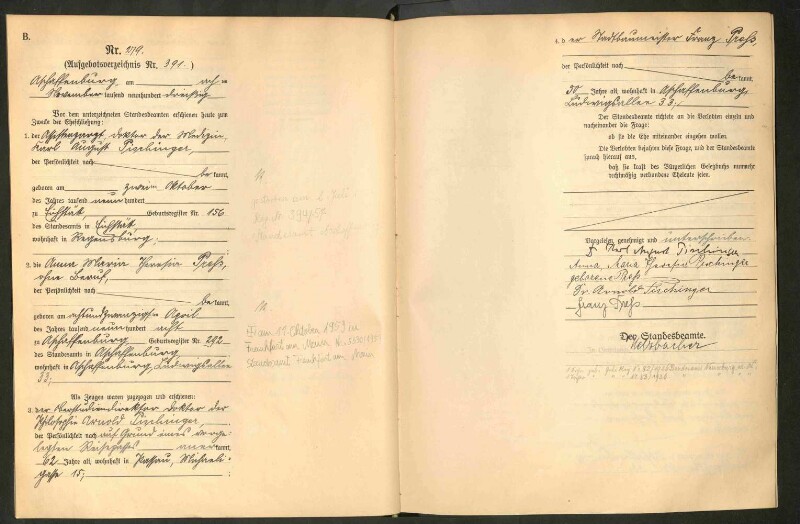 B.
Nr. 279.
(Aufgebotsverzeichnis Nr. 391.)
Aschaffenburg am acht=
November tausend neunhundert dreißig
Vor dem unterzeichneten Standesbeamten erschienen heute zum
Zwecke der Eheschließung:
1. der Assistenzarzt, Doktor der Medizin,
Karl August Pischinger,
der Persönlichkeit nach be kannt,
geboren am zweiten Oktober
des Jahres tausend neunhundert
zu Eichstätt, Geburtsregister Nr. 156
des Standesamts in Eichstätt,
wohnhaft in Regensburg;
2. die Anna Maria Theresia Preß,
ohne Beruf,
der Persönlichkeit nach be kannt,
geboren am achtundzwanzigsten April
des Jahres tausend neunhundert acht
zu Aschaffenburg, Geburtsregister Nr. 292
des Standesamts in Aschaffenburg,
wohnhaft in Aschaffenburg, Ludwigsallee
33;
Als Zeugen waren zugezogen und erschienen:
3. der Oberstudiendirektor Doktor der
Philosophie Arnold Pischinger,
der Persönlichkeit nach auf Grund eines vorge=
legten Reisepasses aner kannt,
62 Jahre alt, wohnhaft in Passau, Michaeli=
gasse 15;
1a
am 2. Juli
394/57
Standesamt
1b
am 17. Oktober 1959 in
Frankfurt am Main
Standesamt Frankfurt am Main
4. der Stadtbaumeister Franz Preß,
der Persönlichkeit nach be kannt,
Jahre alt, wohnhaft in Aschaffenburg,
Ludwigsallee 33.
Der Standesbeamte richtete an die Verlobten einzeln und
nacheinander die Frage:
ob sie die Ehe miteinander eingehen wollen.
Die Verlobten bejahten diese Frage, und der Standesbeamte
sprach hierauf aus,
daß sie kraft des Bürgerlichen Gesetzbuchs nunmehr
rechtmäßig verbundene Eheleute seien.
Vorgelesen, genehmigt und unterschrieben
Dr Karl August Pischinger
Anna Maria Theresia Pischinger
geborene Preß
Dr. Arnold Pischinger
Franz Preß
Der Standesbeamte.